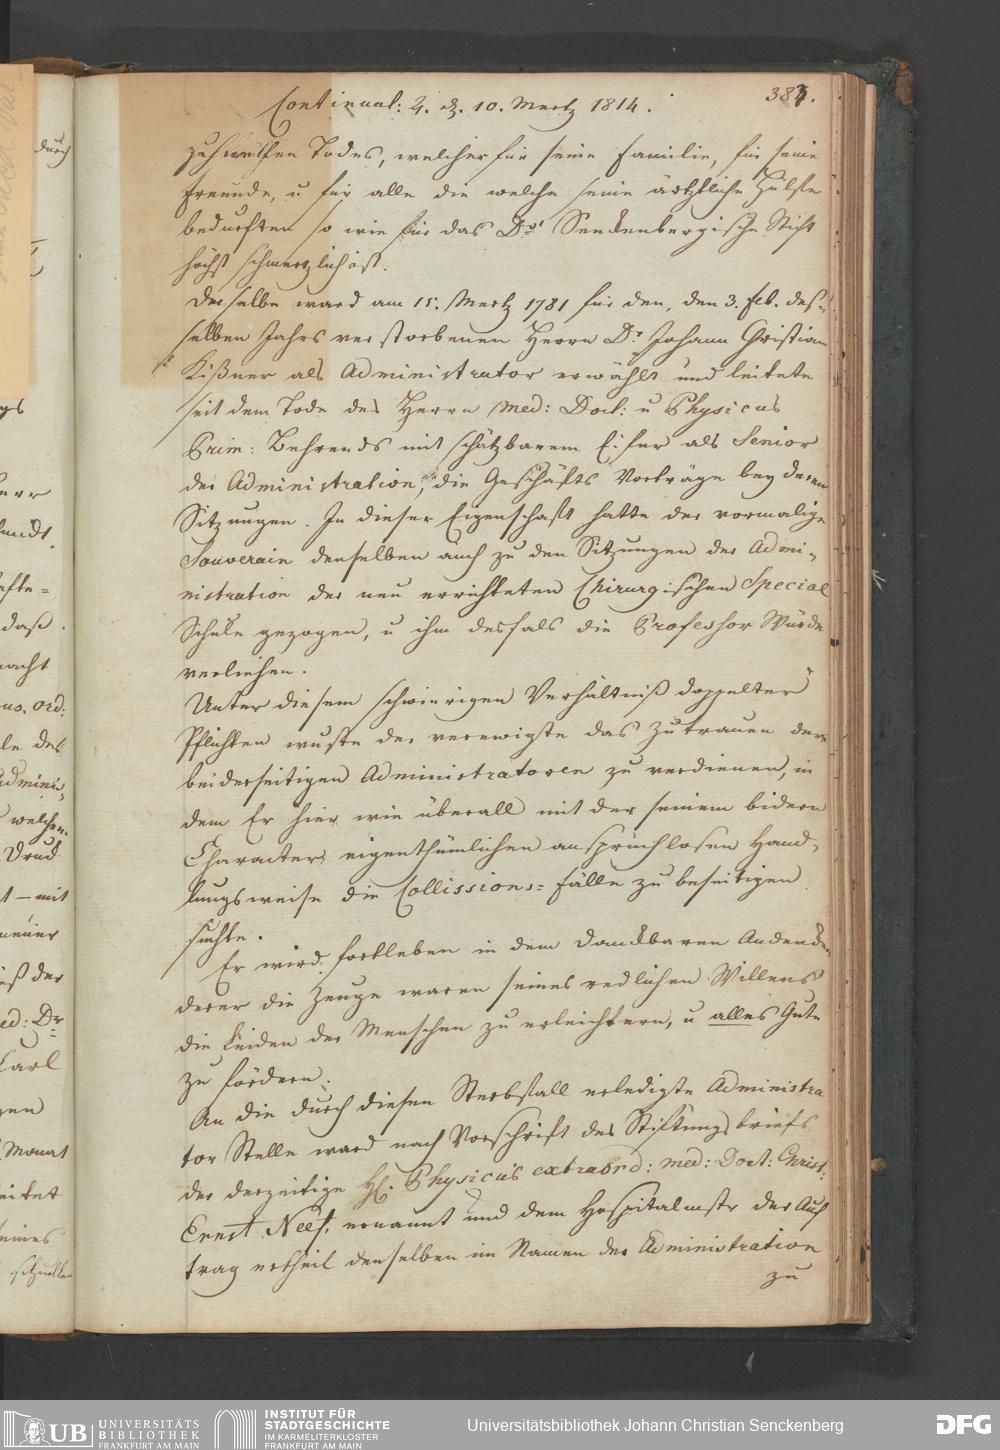 Continuat: 2. d. 10. Mertz 1814.
383.
Todes, welcher für seine Familie, für seine
Freunde, u für alle die welche seine ärtztliche Hülfe
bedurften so wie für das Drl Senckenbergische Stift
höchst schmertzlich ist.
Derselbe ward am 15. Mertz 1781 für den, den 3. Feb. des¬
selben Jahrs verstorbenen Herrn Dr Johann Christian
Kißner als Administrator erwählt und leitete
seit dem Tode des Herrn Med: Doct: u Physicus
Prim: Behrends mit schätzbarem Eifer als Senior
der Administration, die Geschäfts Vorträge bey deren
Sitzungen. In dieser Eigenschaft hatte der vormalige
Souverain denselben auch zu den Sitzungen der Admi¬
nistration der neu errichteten Chirurgischen Special
Schule gezogen, u ihm desfals die Professor Würde
verliehen.
Unter diesem schwierigen Verhältniß doppelter
Pflichten wuste der verewigte das Zutrauen der
beiderseitigen Administratoren zu verdienen, in
dem Er hier wie überall mit der seinem bidern
Character eigenthümlichen anspruchlosen Hand¬
lungsweise die Collissions= Fälle zu beseitigen
suchte.
Er wird fortleben in dem dankbaren Andenken
derer die Zeuge waren seines redlichen Willens
die Leiden der Menschen zu erleichtern, u alles Gute
zu fördern.
An die durch diesen Sterbfall erledigte Administra
tor Stelle ward nach Vorschrift des Stiftungsbriefs
der derzeitige H. Physicus extraord: Med: Doct: Christ:
Ernst Neef, ernannt und dem Hospitalmstr der Auf
trag ertheil denselben im Namen der Administration
zu
durch
daß
macht
Admini¬
welchen
— mit
Carl
Monat
UB UNIVERSITÄTS
BIBLIOTHEK
FRANKFURT AM MAIN
INSTITUT FÜR
STADTGESCHICHTE
IM KARMELITERKLOSTER
FRANKFURT AM MAIN
Universitätsbibliothek Johann Christian Senckenberg
DFG